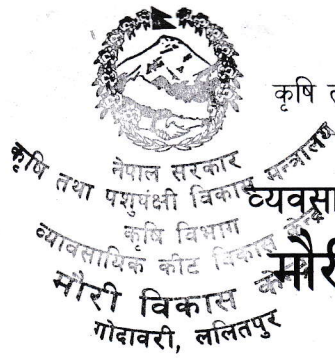 कृषि त
नेपाल सरकार
कृषि तथा पशुपंक्षी विकास मन्त्रालय
व्यवसा
कृषि विभाग
व्यावसायिक कीट विकास केन्द्र
मौरी
मौरी विकास
गोदावरी, ललितपुर